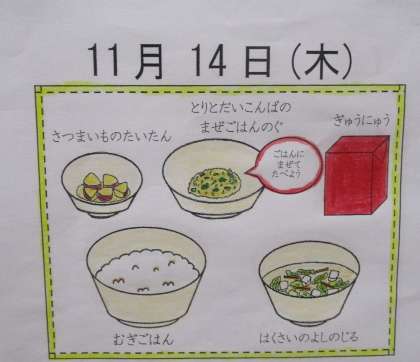 11月 14日(木)
とりとだいこんばの
まぜごはんのぐ
さつまいものたいたん
ぎゅうにゅう
ごはんに
まぜて
たべよう
むぎごはん
はくさいのよしのじる